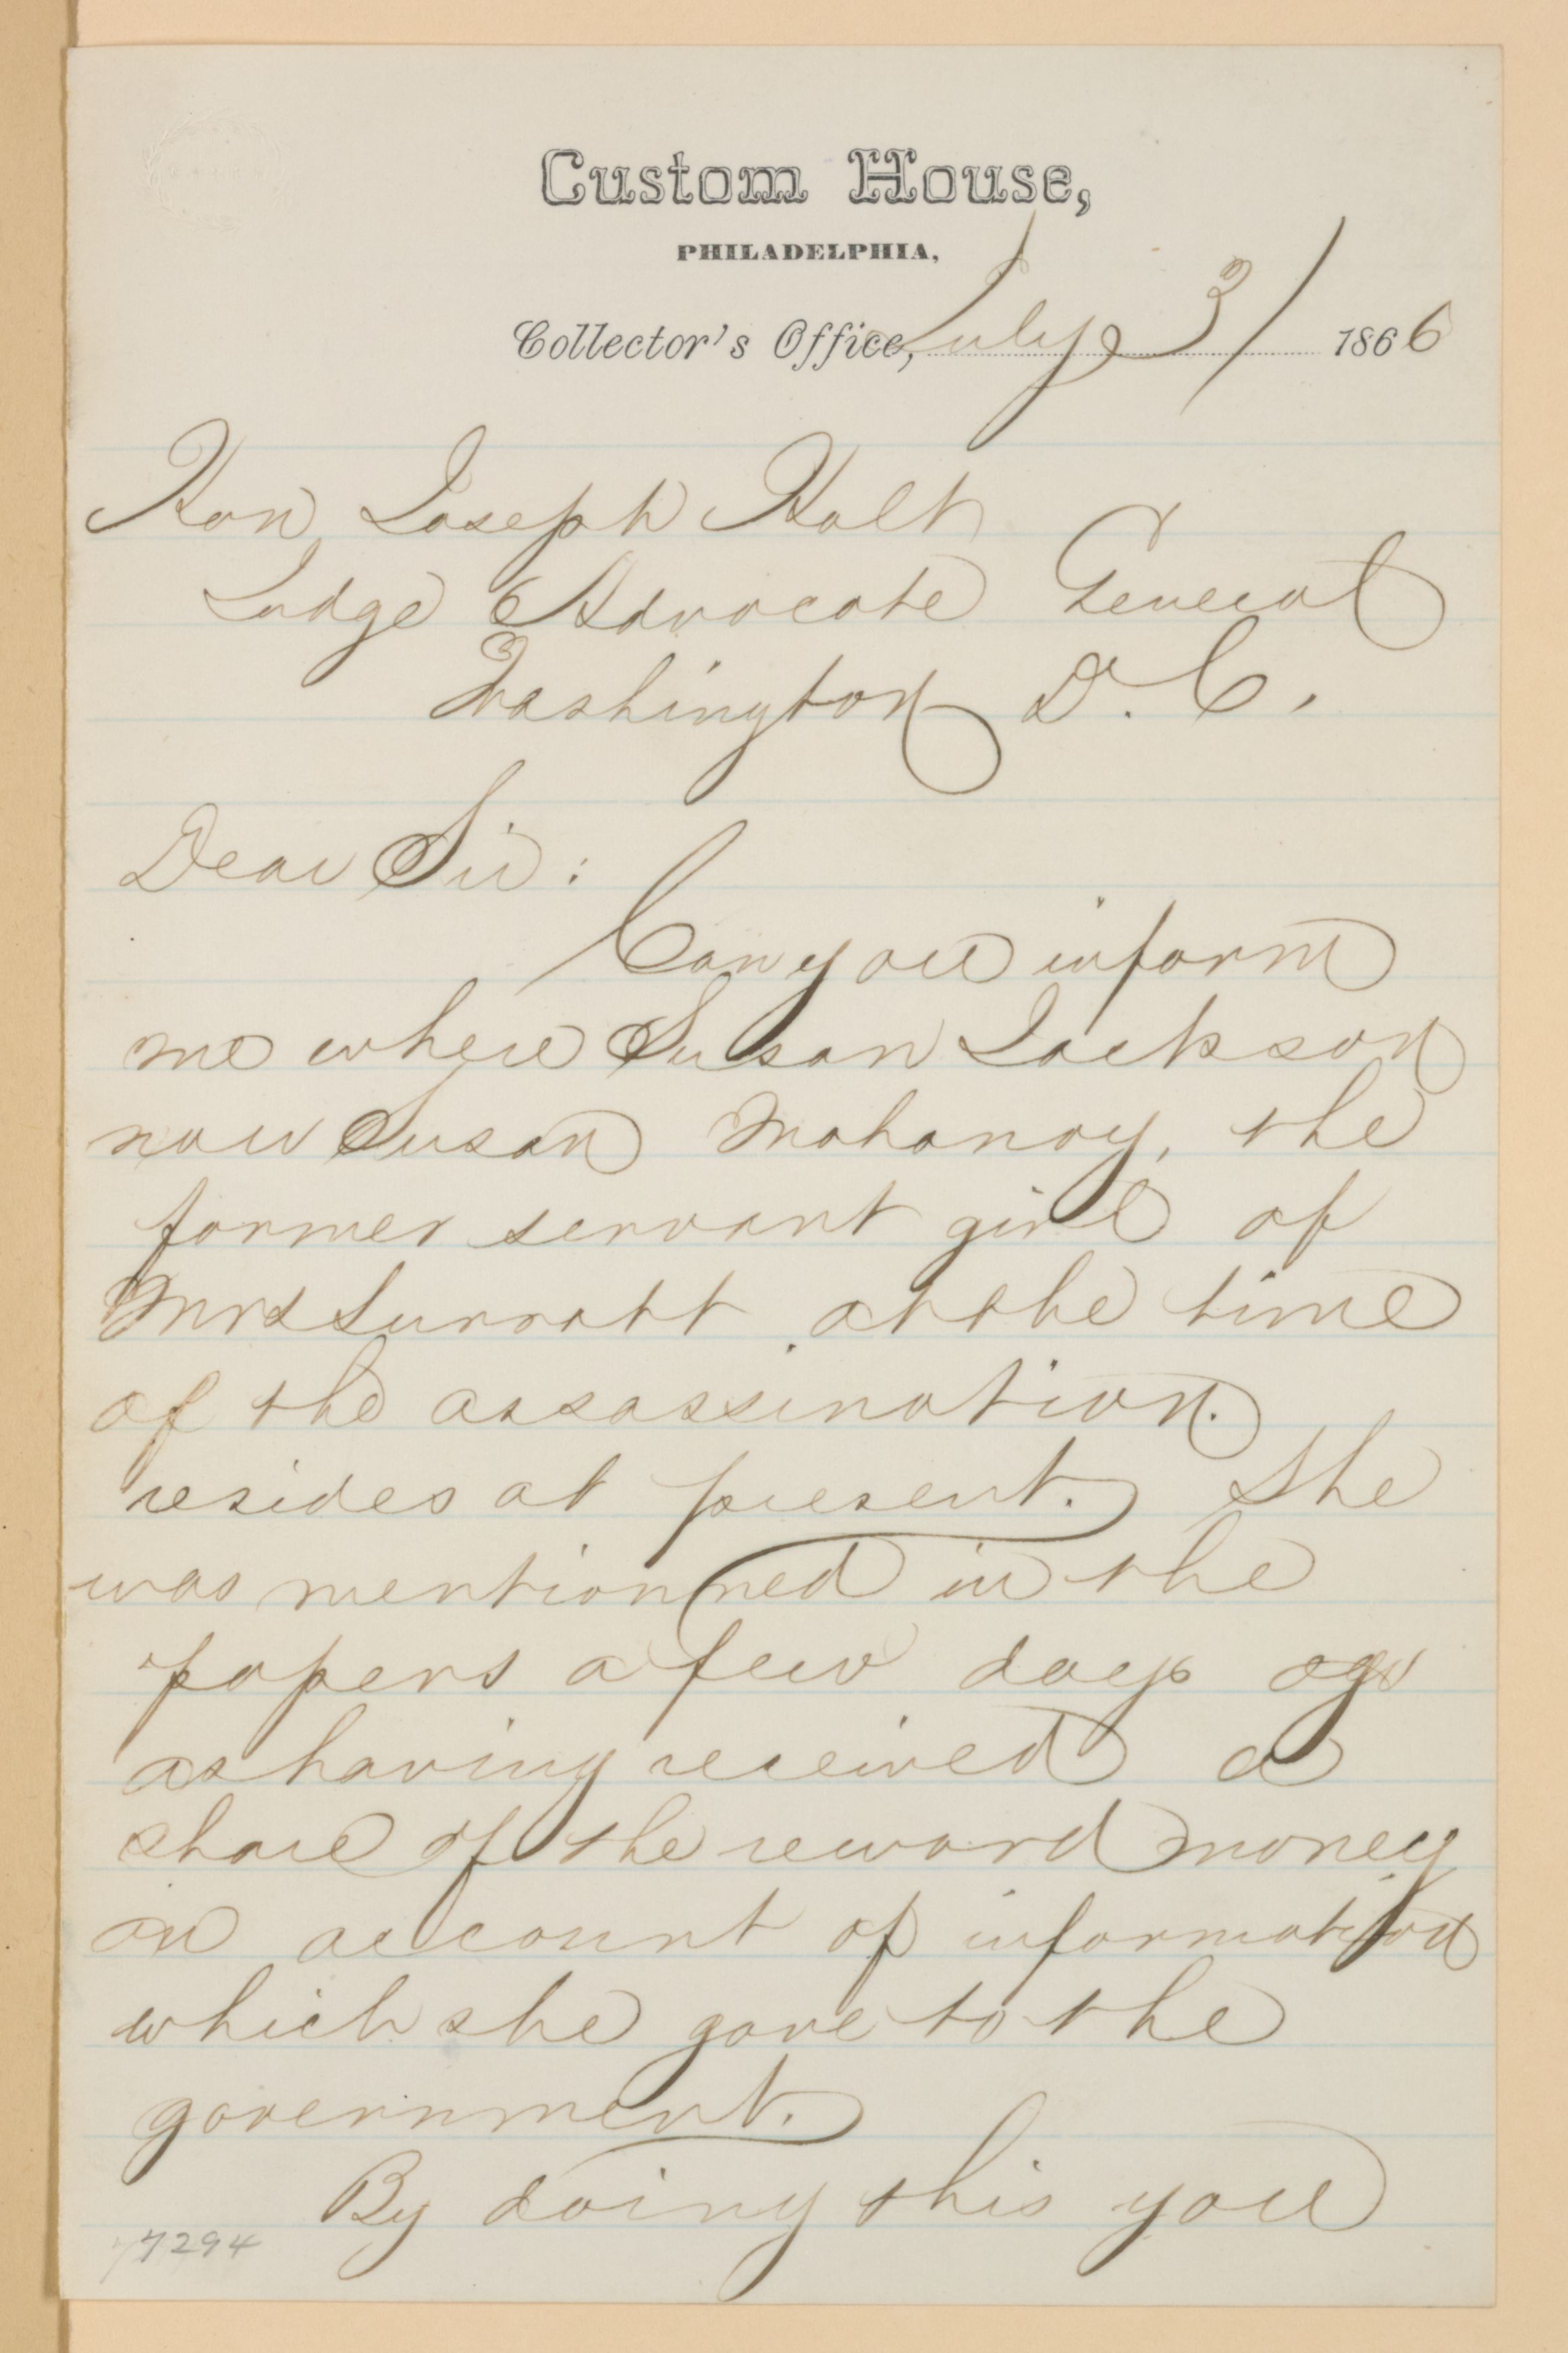 Custom House,
PHILADELPHIA,
Collector's Office, July 31 1866
Hon Joseph Holt
Judge Advocate General
Washington D. C.
Dear Sir:
Can you inform
me where Susan Jackson
now Susan Mahonay, the
former servant girl of
Mrs Surratt at the time
of the assassination.
resides at present. She
was mentionned in the
papers a few days ago
as having received a
share of the reward money
on account of information
which she gave to the
government.
By doing this you
7294